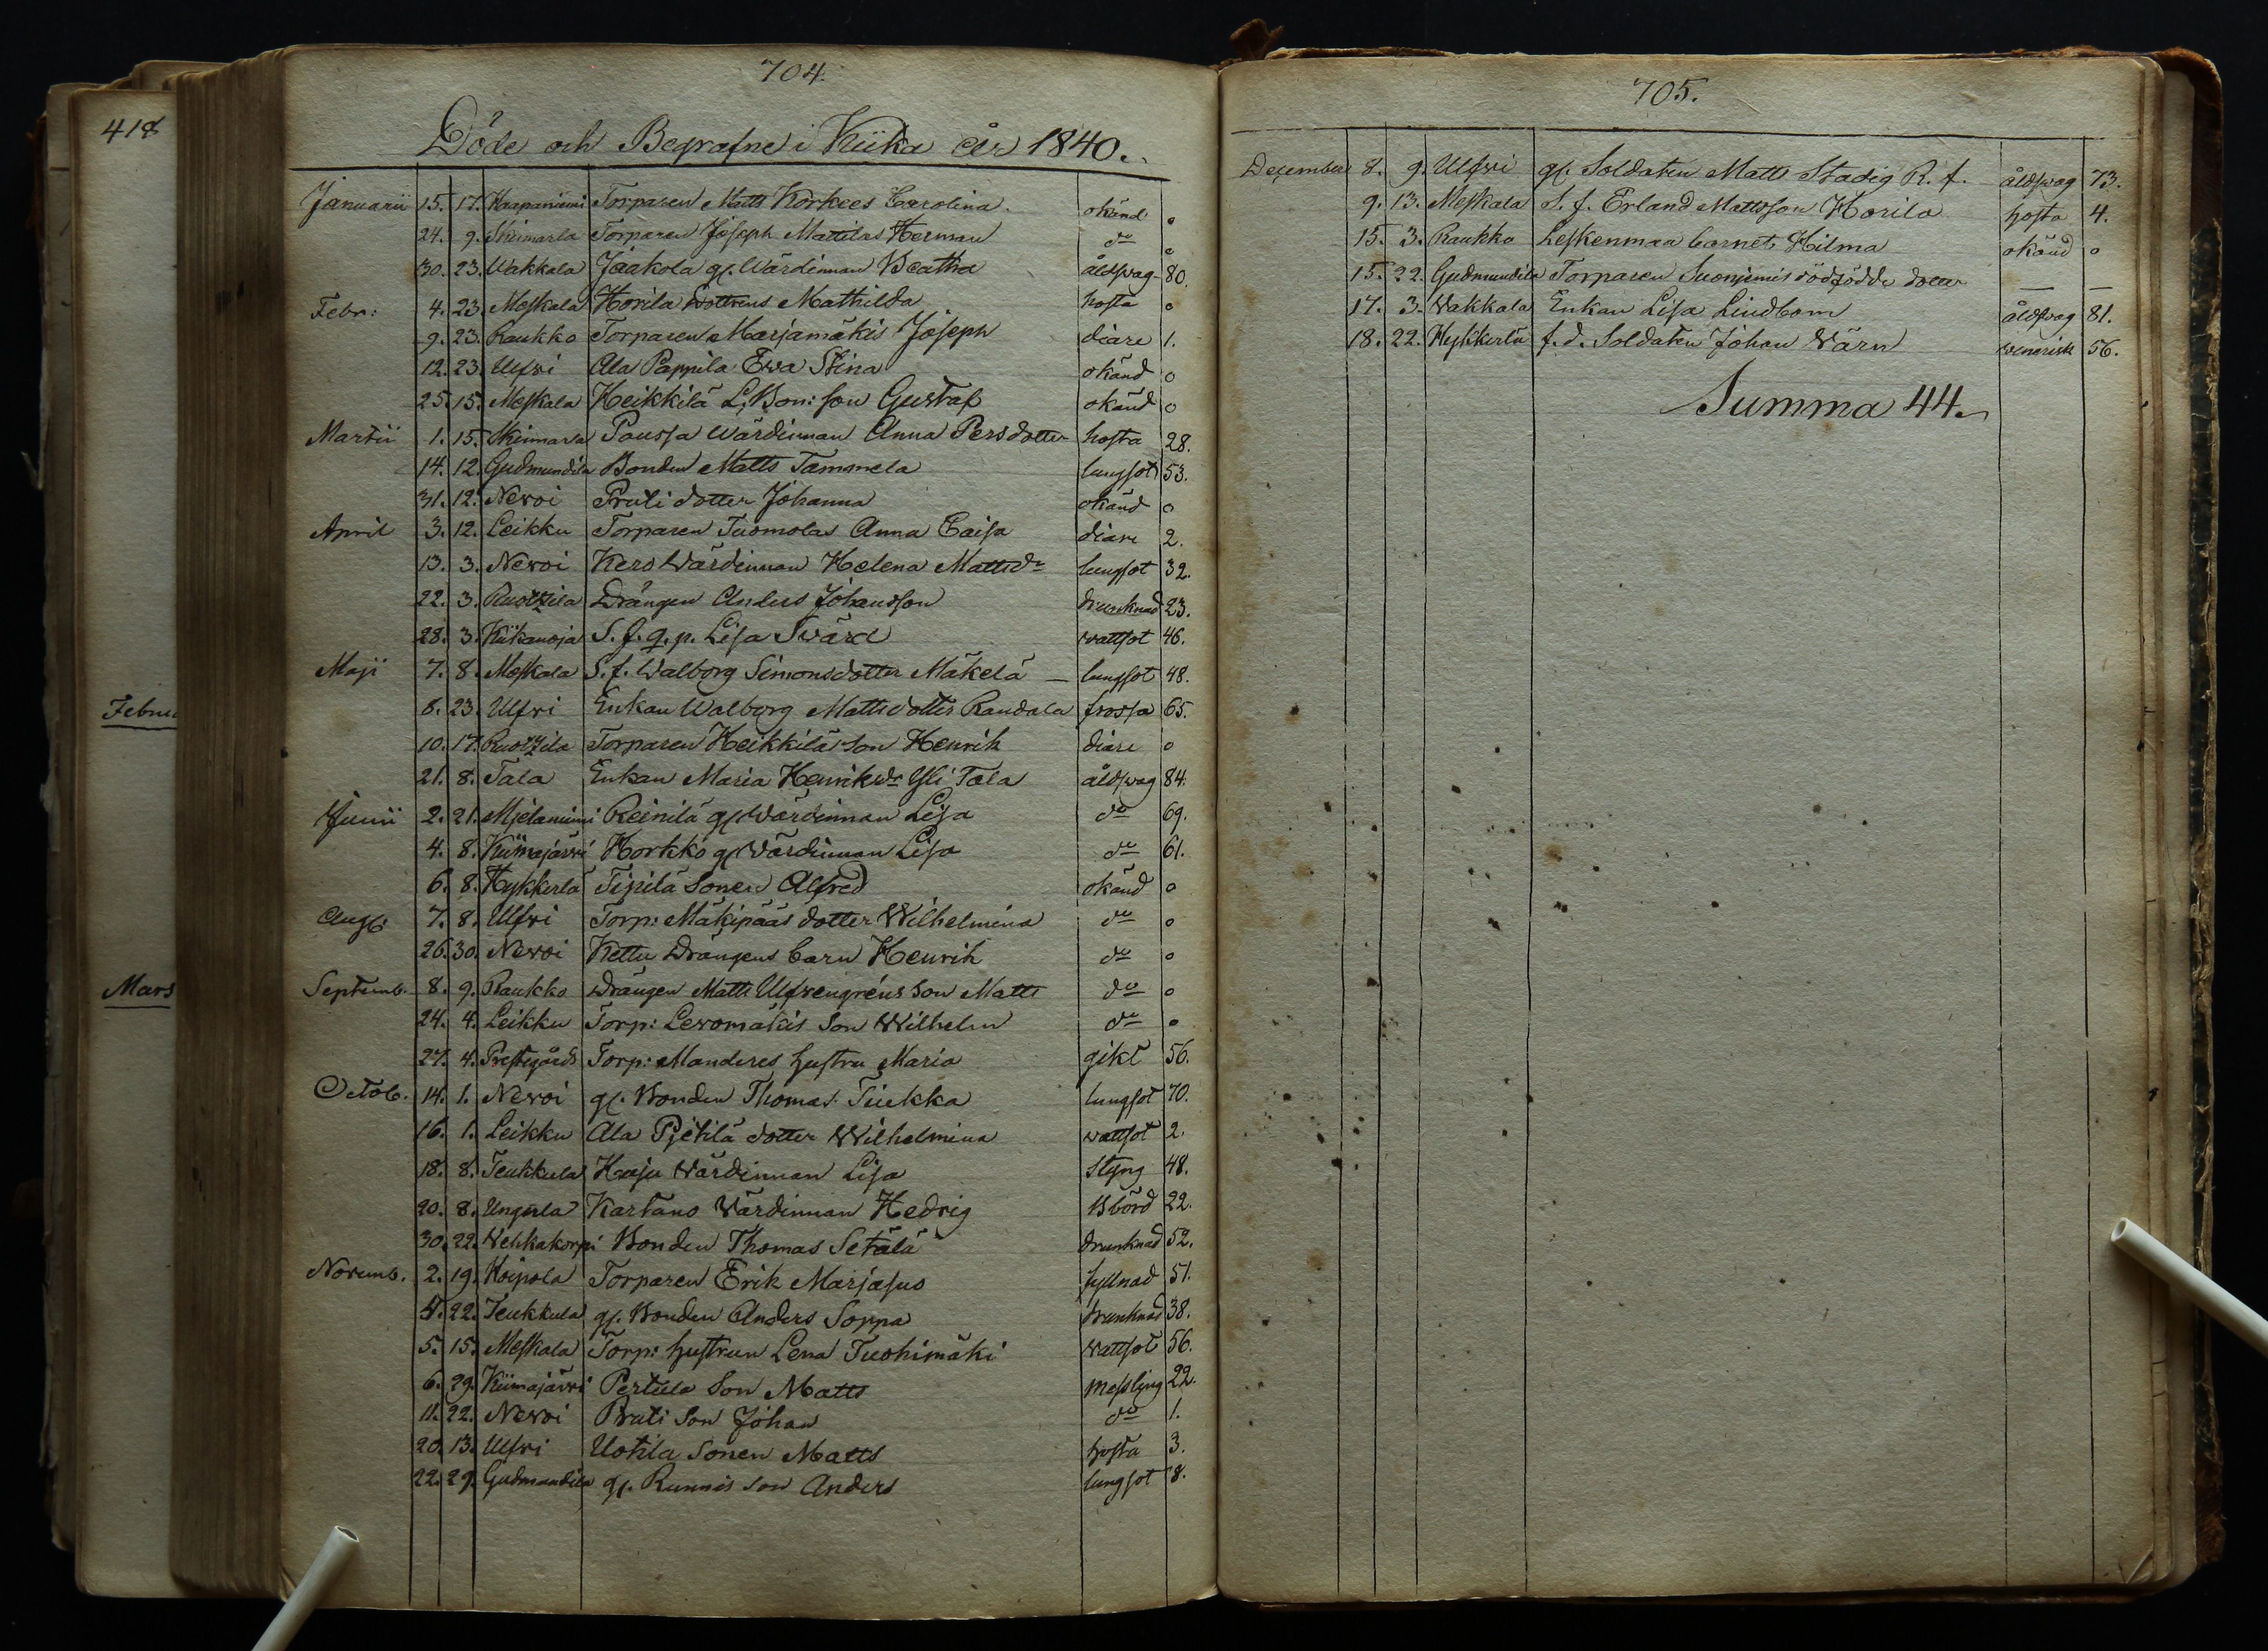 418
Februa
Mars
704.
Döde och Begrafne i Kiika år 1840.
Januarii 15. 17. Haapaniemi Torparen Matts Korkees Carolina. okänd 0
24. 9. Skinnarla Torparen Joseph Mattilas Herman do 0
30. 23. Wakkala Jaakola gl. Wärdinnan Beatha åldswag 80.
Febr: 4. 23. Meskala Horila dotterns Mathilda hosta 0
9. 23. Raukko Torparen Marjamäkis Joseph diare 1.
12. 23. Ulfvi Ala Pappila Ewa Stina okänd 0
25. 15. Meskala Heikkilä L. Bon: son Gustaf okänd 0
Martii 1. 15. Skinnarla Paussa Wärdinnan Anna Persdotter hosta 28.
14. 12. Gudmundila Bonden Matts Tammela lungsot 53.
31. 12. Newoi Pruti dotter Johanna okänd 0
April 3. 12. Leikku Torparen Tuomolas Anna Caisa diare 2.
13. 3. Newoi Kero Wärdinnan Helena Mattsdr lungsot 32.
22. 3. Ruotzila Drängen Anders Johansson drunknad 23.
28. 3. Kiikanoja S. f. q. p. Lisa Svärd wattsot 46.
Maji 7. 8. Meskala S. f. Walborg Simonsdotter Mäkelä — lungsot 48.
8. 23. Ulfvi Enkan Walborg Mattsdotter Randala frossa 65.
10. 17. Ruotzila Torparen Heikkilä son Henrik diare 0
21. 8. Tala Enkan Maria Henriksdr Yli Tala åldswag 84.
Junii 2. 21. Mjelaniemi Reinilä gl. Wärdinnan Lisa do 69.
4. 8. Kiimajärvi Horkko gl. Wärdinnan Lisa do 61.
6. 8. Hykkerlä Tipilä Sonen Alfred okänd 0
Aug. 7. 8. Ulfvi Torp: Mäkipääs dotter Wilhelmina do 0
26. 30. Newoi Kettu Drängens barn Henrik do 0
Septemb. 8. 9. Raukko Drängen Matts Ulfvengréns Son Matts do 0
24. 4. Leikku Torp: Levomäkis Son Wilhelm do 0
27. 4. Prestegårds Torp: Manderes hustru Maria gikt 56.
Octob. 14. 1. Newoi gl. Bonden Thomas Tiukka lungsot 70.
16. 1. Leikku Ala Pjetilä dotter Wilhelmina wattsot 2.
18. 8. Teukkula Haju Wärdinnan Lisa styng 48.
20. 8. Ungerla Kartano Wärdinnan Hedvig Bbörd 22.
30. 22. Wehkakorpi Bonden Thomas Setälä drunknad 52.
Novemb. 2. 19. Koipola Torparen Erik Marjasus fyllnad 51.
4. 22. Teukkula gl. Bonden Anders Soppa drunknad 38.
5. 15. Meskala Torp: hustrun Lena Tuohimäki wattsot 56.
6. 29. Kiimajärvi Pertula Son Matts messling 22.
11. 22. Newoi Pruti Son Johan do 1.
20. 13. Ulfvi Uotila Sonen Matts hosta 3.
22. 29. Gudmundila gl. Runnis son Anders lungsot 8.
705.
December 8. 9. Ulfvi gl. Soldaten Matts Stadig R. f. åldswag 73.
9. 13. Meskala S. f. Erland Mattsson Horila hosta 4.
15. 3. Raukko Leskenmaa barnets Hilma okänd 0
15. 22. Gudmundila Torparen Suoniemis dödfödde dotter — —
17. 3. Wakkala Enkan Lisa Lindbom åldswag 81.
18. 22. Hykkerlä f. d. Soldaten Johan Wärn venerisk 56.
Summa 44.